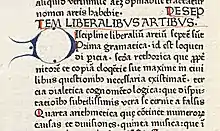 aliquid verisimile atq; opinabile tractatur
nomen artis habebit · DE SEP
TEM LIBERALIBVS ARTIBVS.
Discipline liberaliũ artiũ septẽ
Prima gramatica · id est loquen
di pitia · scda rethorica que ppt
nitorẽ et copiã eloquẽtie sue maxime in
ilibus questionibus necessaria existimat̃ · ter
tia dialetica cognomẽto logica · que dispu
tatioĩbus subtilissimis vera secernit a falsis
Quarta arithmetica que cõtinet numeror
causas et diuisiones · quinta musica que ĩ